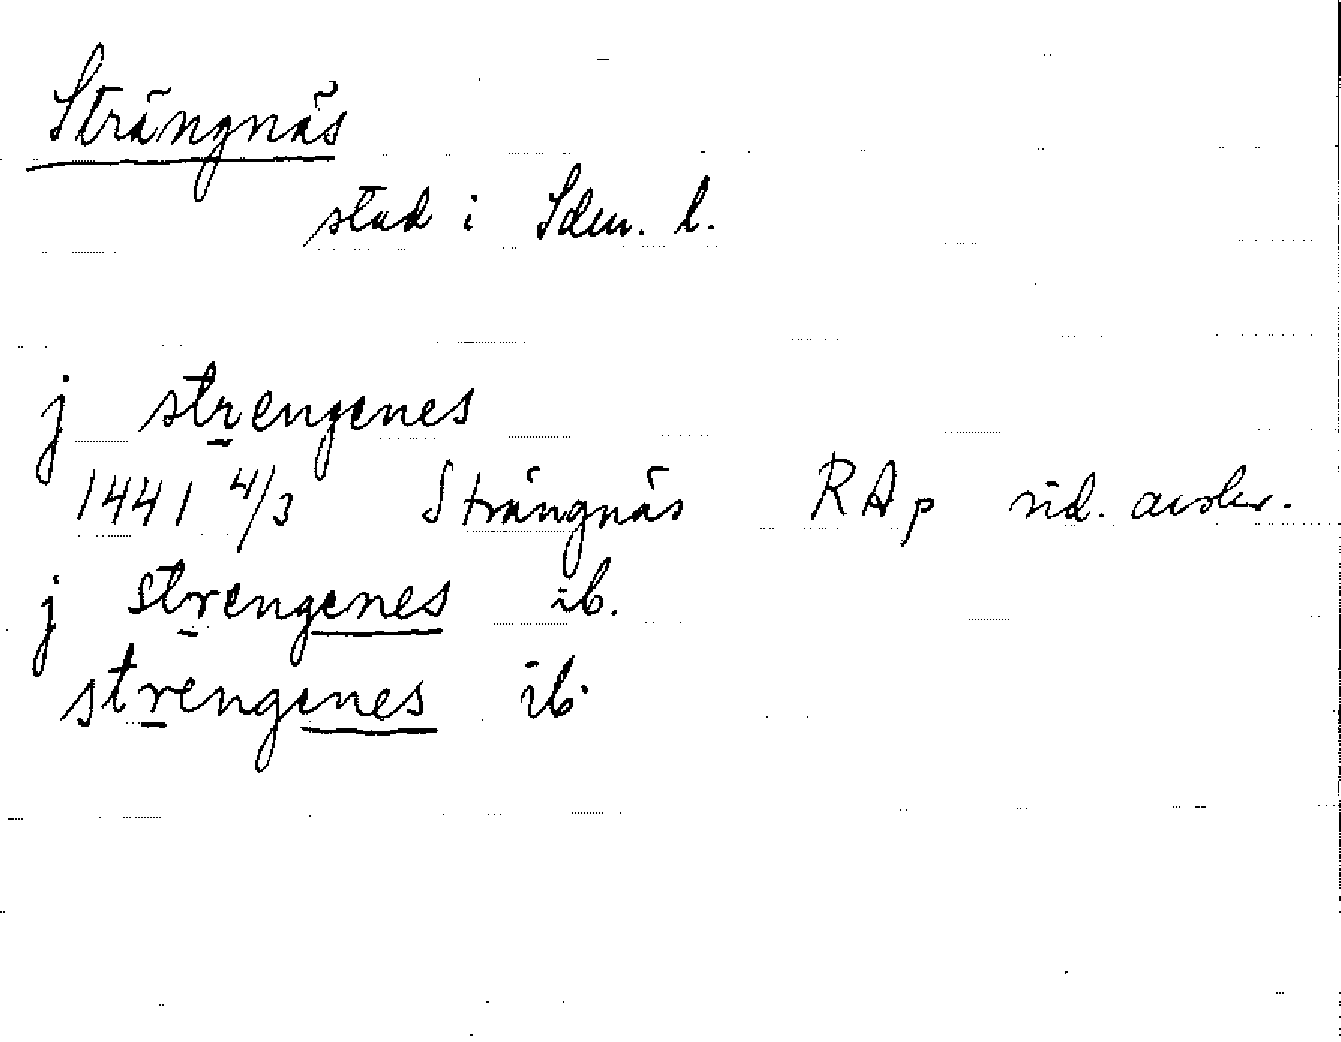 Strängnäs
stad i Sdm. l.
j strengenes
1441 4/3 Strängnäs RAp vid. avskr.
j strengenes ib.
strengenes ib.